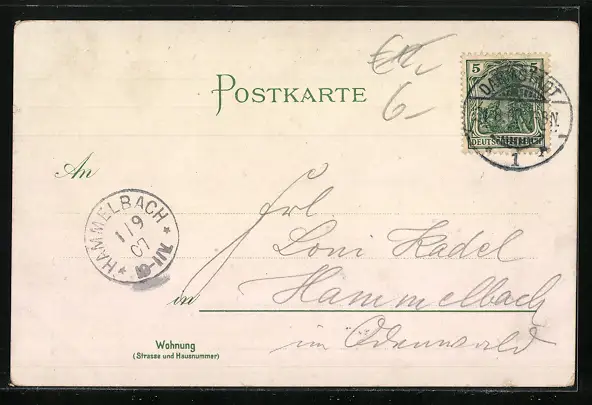 POSTKARTE
6-
5 5
DARMSTADT
DEUTSCHES REICH
1
An
HAMMELBACH
1/9
07
10-11V.
Frl.
Loni Kadel
in Hammelbach
im Odenwald
Wohnung
(Strasse und Hausnummer)